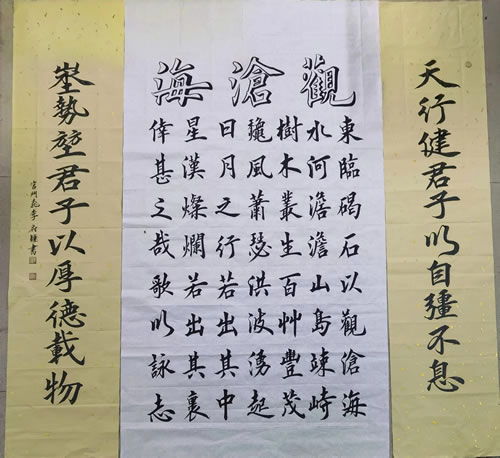 天行健君子以自彊不息
觀滄海
東臨碣石以觀滄海
水河澹澹山島竦崎
樹木叢生百艸豐茂
龝風蕭瑟洪波湧起
日月之行若出其中
星漢燦爛若出其裏
倖甚之哉歌以詠志
埊勢堃君子以厚德載物